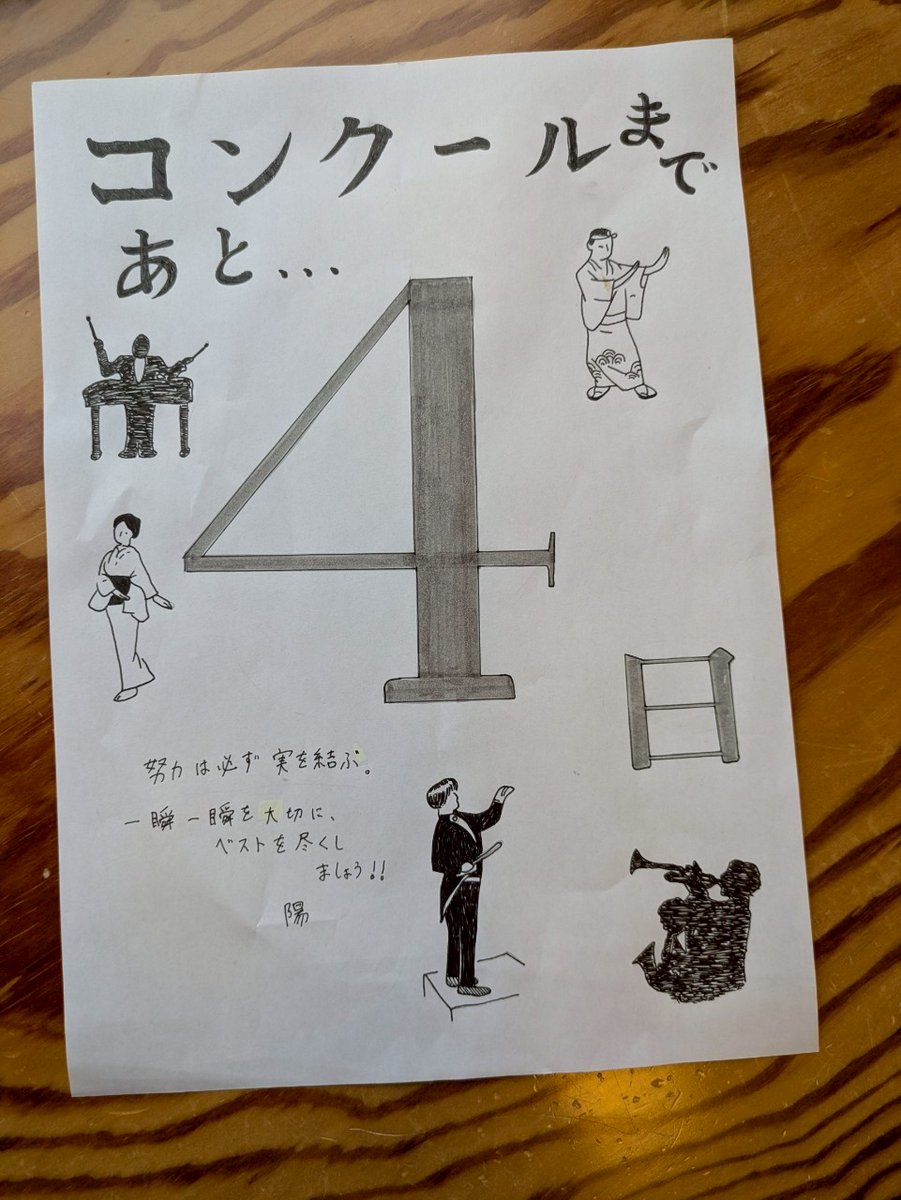 コンクールまで
あと...
4
日
努力は必ず実を結ぶ。
一瞬一瞬を大切に、
ベストを尽くし
ましょう!!
陽